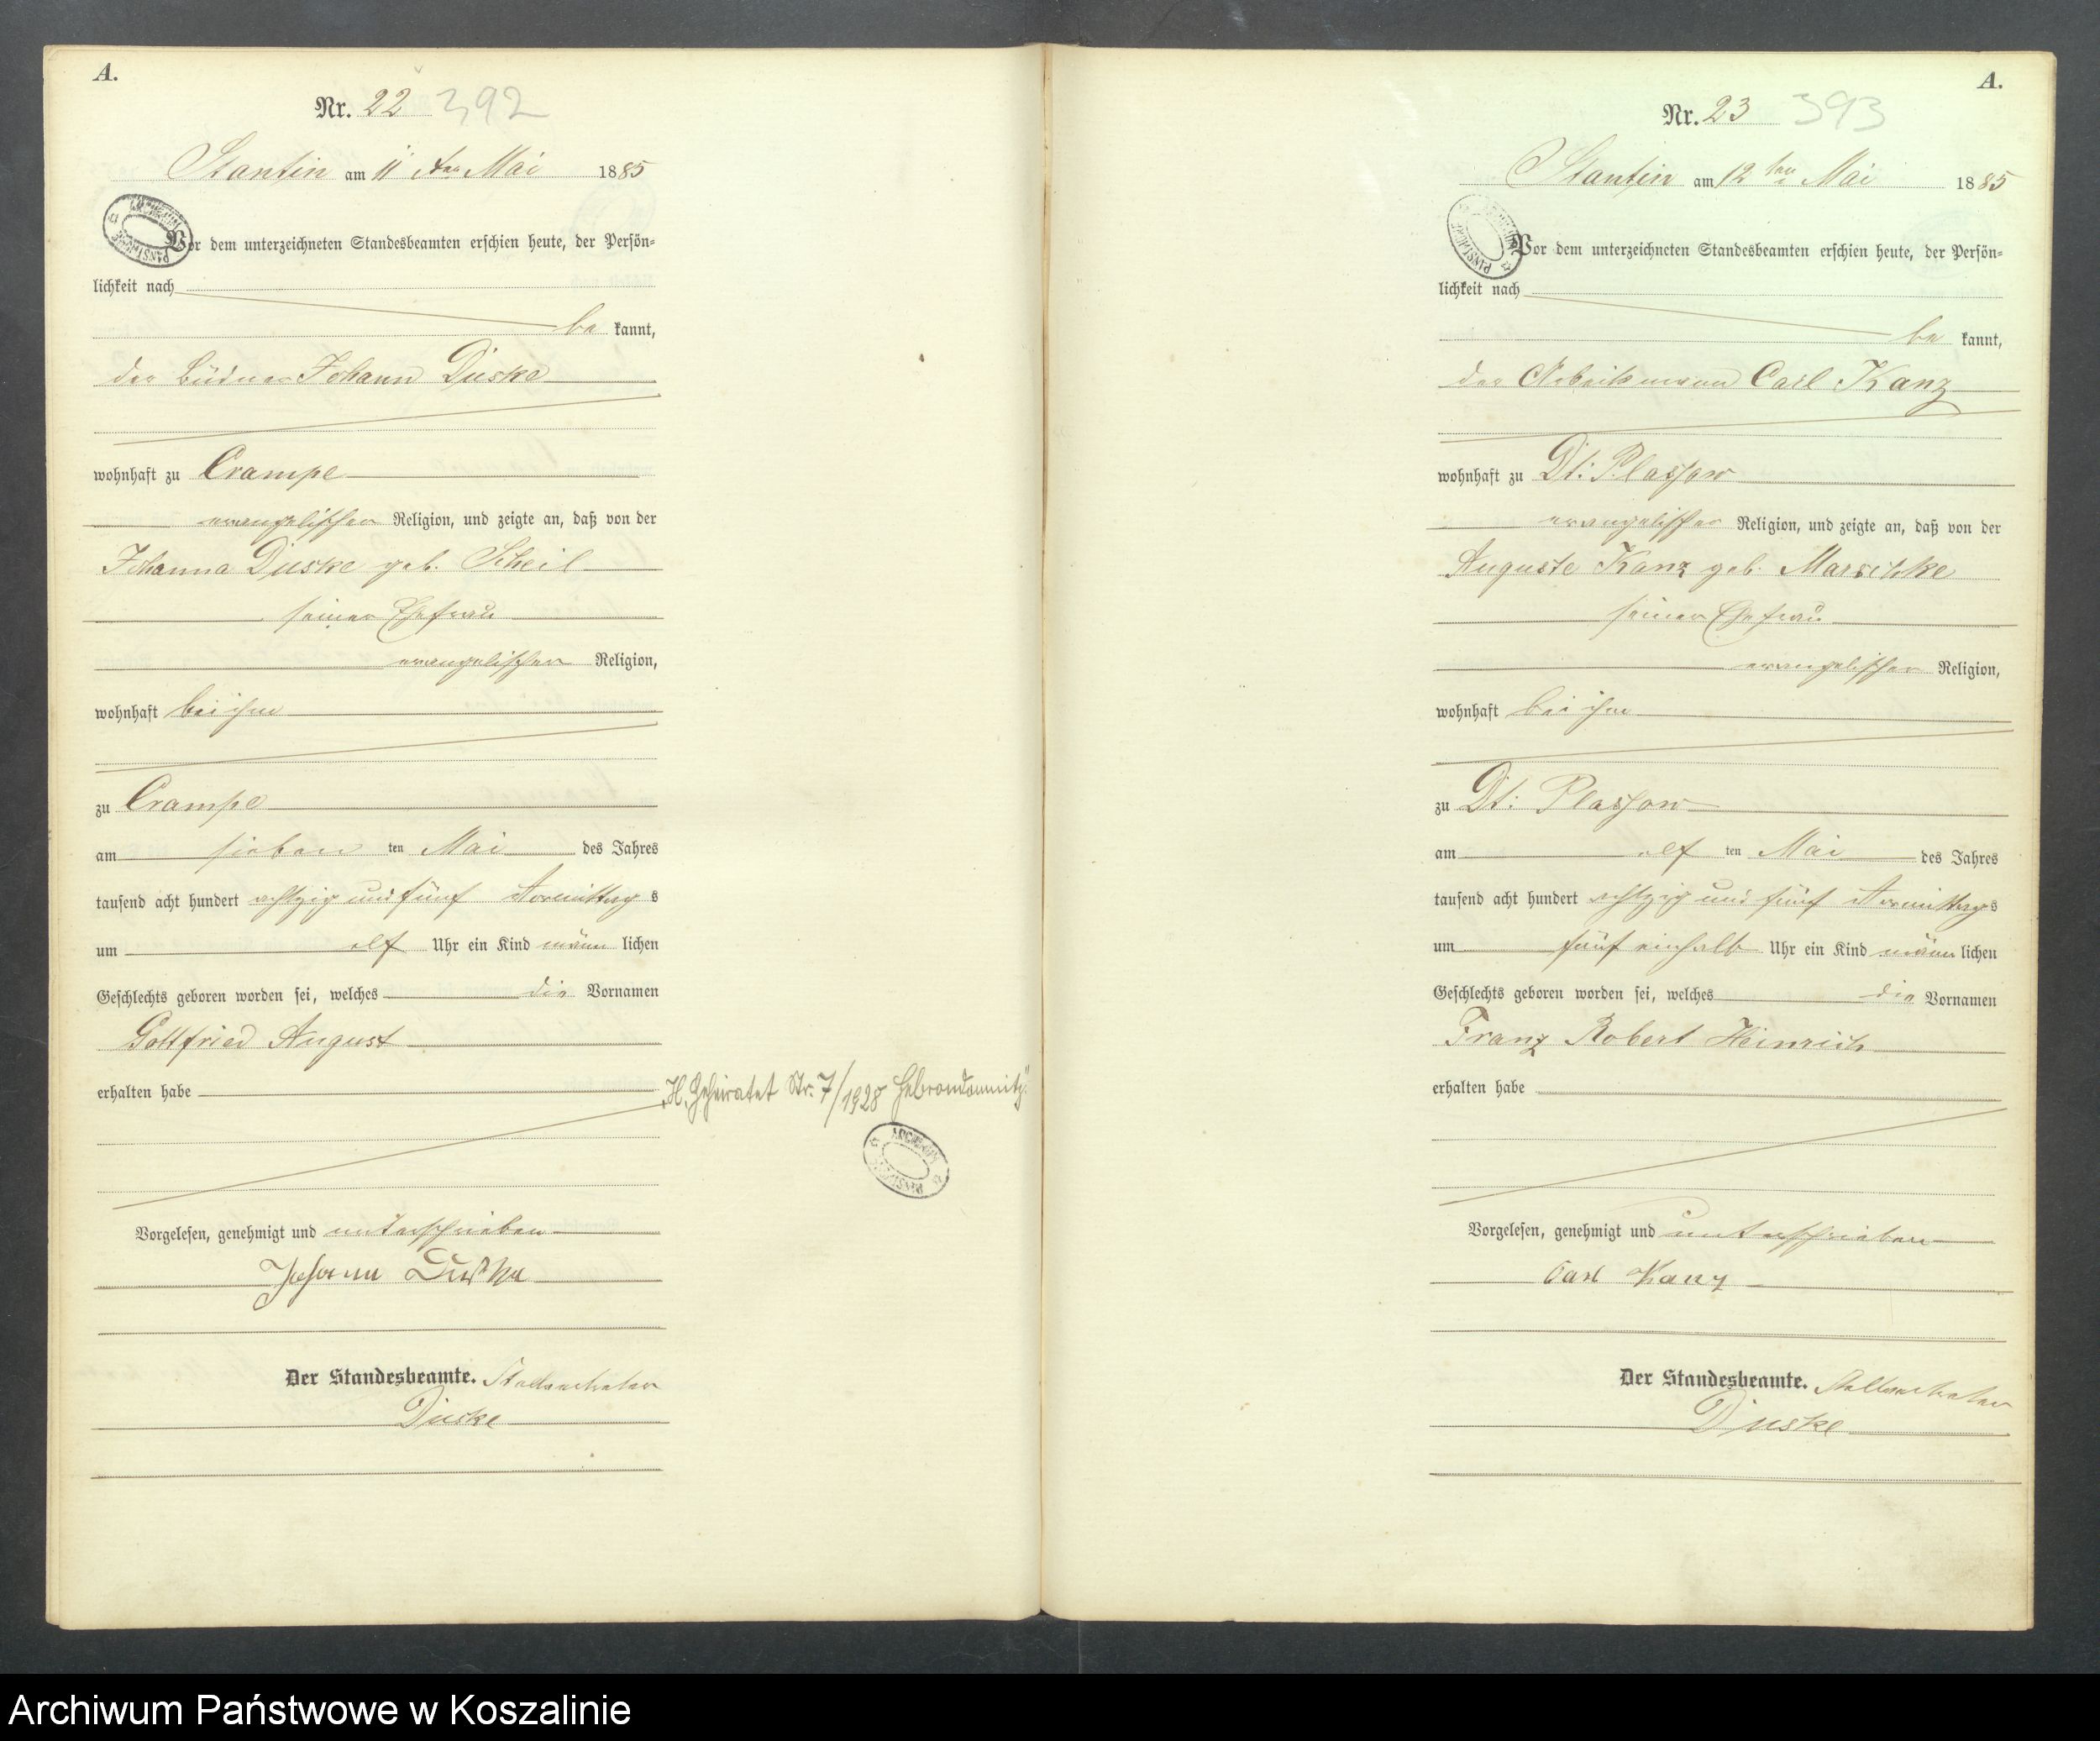 A.
Nr. 22 392
Stantin am 11 ten Mai 1885
ARCHIWUM PAŃSTWOWE
Vor dem unterzeichneten Standesbeamten erschien heute, der Persön=
lichkeit nach
be kannt,
der Büdner Johann Duske
wohnhaft zu Crampe
evangelischer Religion, und zeigte an, daß von der
Johanna Duske geb. Scheil
seiner Ehefrau
evangelischer Religion,
wohnhaft bei ihm
zu Crampe
am sieben ten Mai des Jahres
tausend acht hundert achtzig und fünf Vormittag s
um elf Uhr ein Kind männ lichen
Geschlechts geboren worden sei, welches die Vornamen
Gottfried August
erhalten habe
„H. Geheiratet Nr. 7/1928 Hebrondamnitz“
ARCHIWUM PAŃSTWOWE
Vorgelesen, genehmigt und unterschrieben
Johann Duske
Der Standesbeamte. Stellvertreter
Duske
A.
Nr. 23 393
Stantin am 12 ten Mai 1885
ARCHIWUM PAŃSTWOWE
Vor dem unterzeichneten Standesbeamten erschien heute, der Persön=
lichkeit nach
be kannt,
der Arbeitsmann Carl Kanz
wohnhaft zu Dt: Plassow
evangelischer Religion, und zeigte an, daß von der
Auguste Kanz geb. Marschke
seiner Ehefrau
evangelischer Religion,
wohnhaft bei ihm
zu Dt: Plassow
am elf ten Mai des Jahres
tausend acht hundert achtzig und fünf Vormittags
um fünf einhalb Uhr ein Kind männ lichen
Geschlechts geboren worden sei, welches die Vornamen
Franz Robert Heinrich
erhalten habe
Vorgelesen, genehmigt und unterschrieben
Carl Kanz
Der Standesbeamte. Stellvertreter
Duske
Archiwum Państwowe w Koszalinie